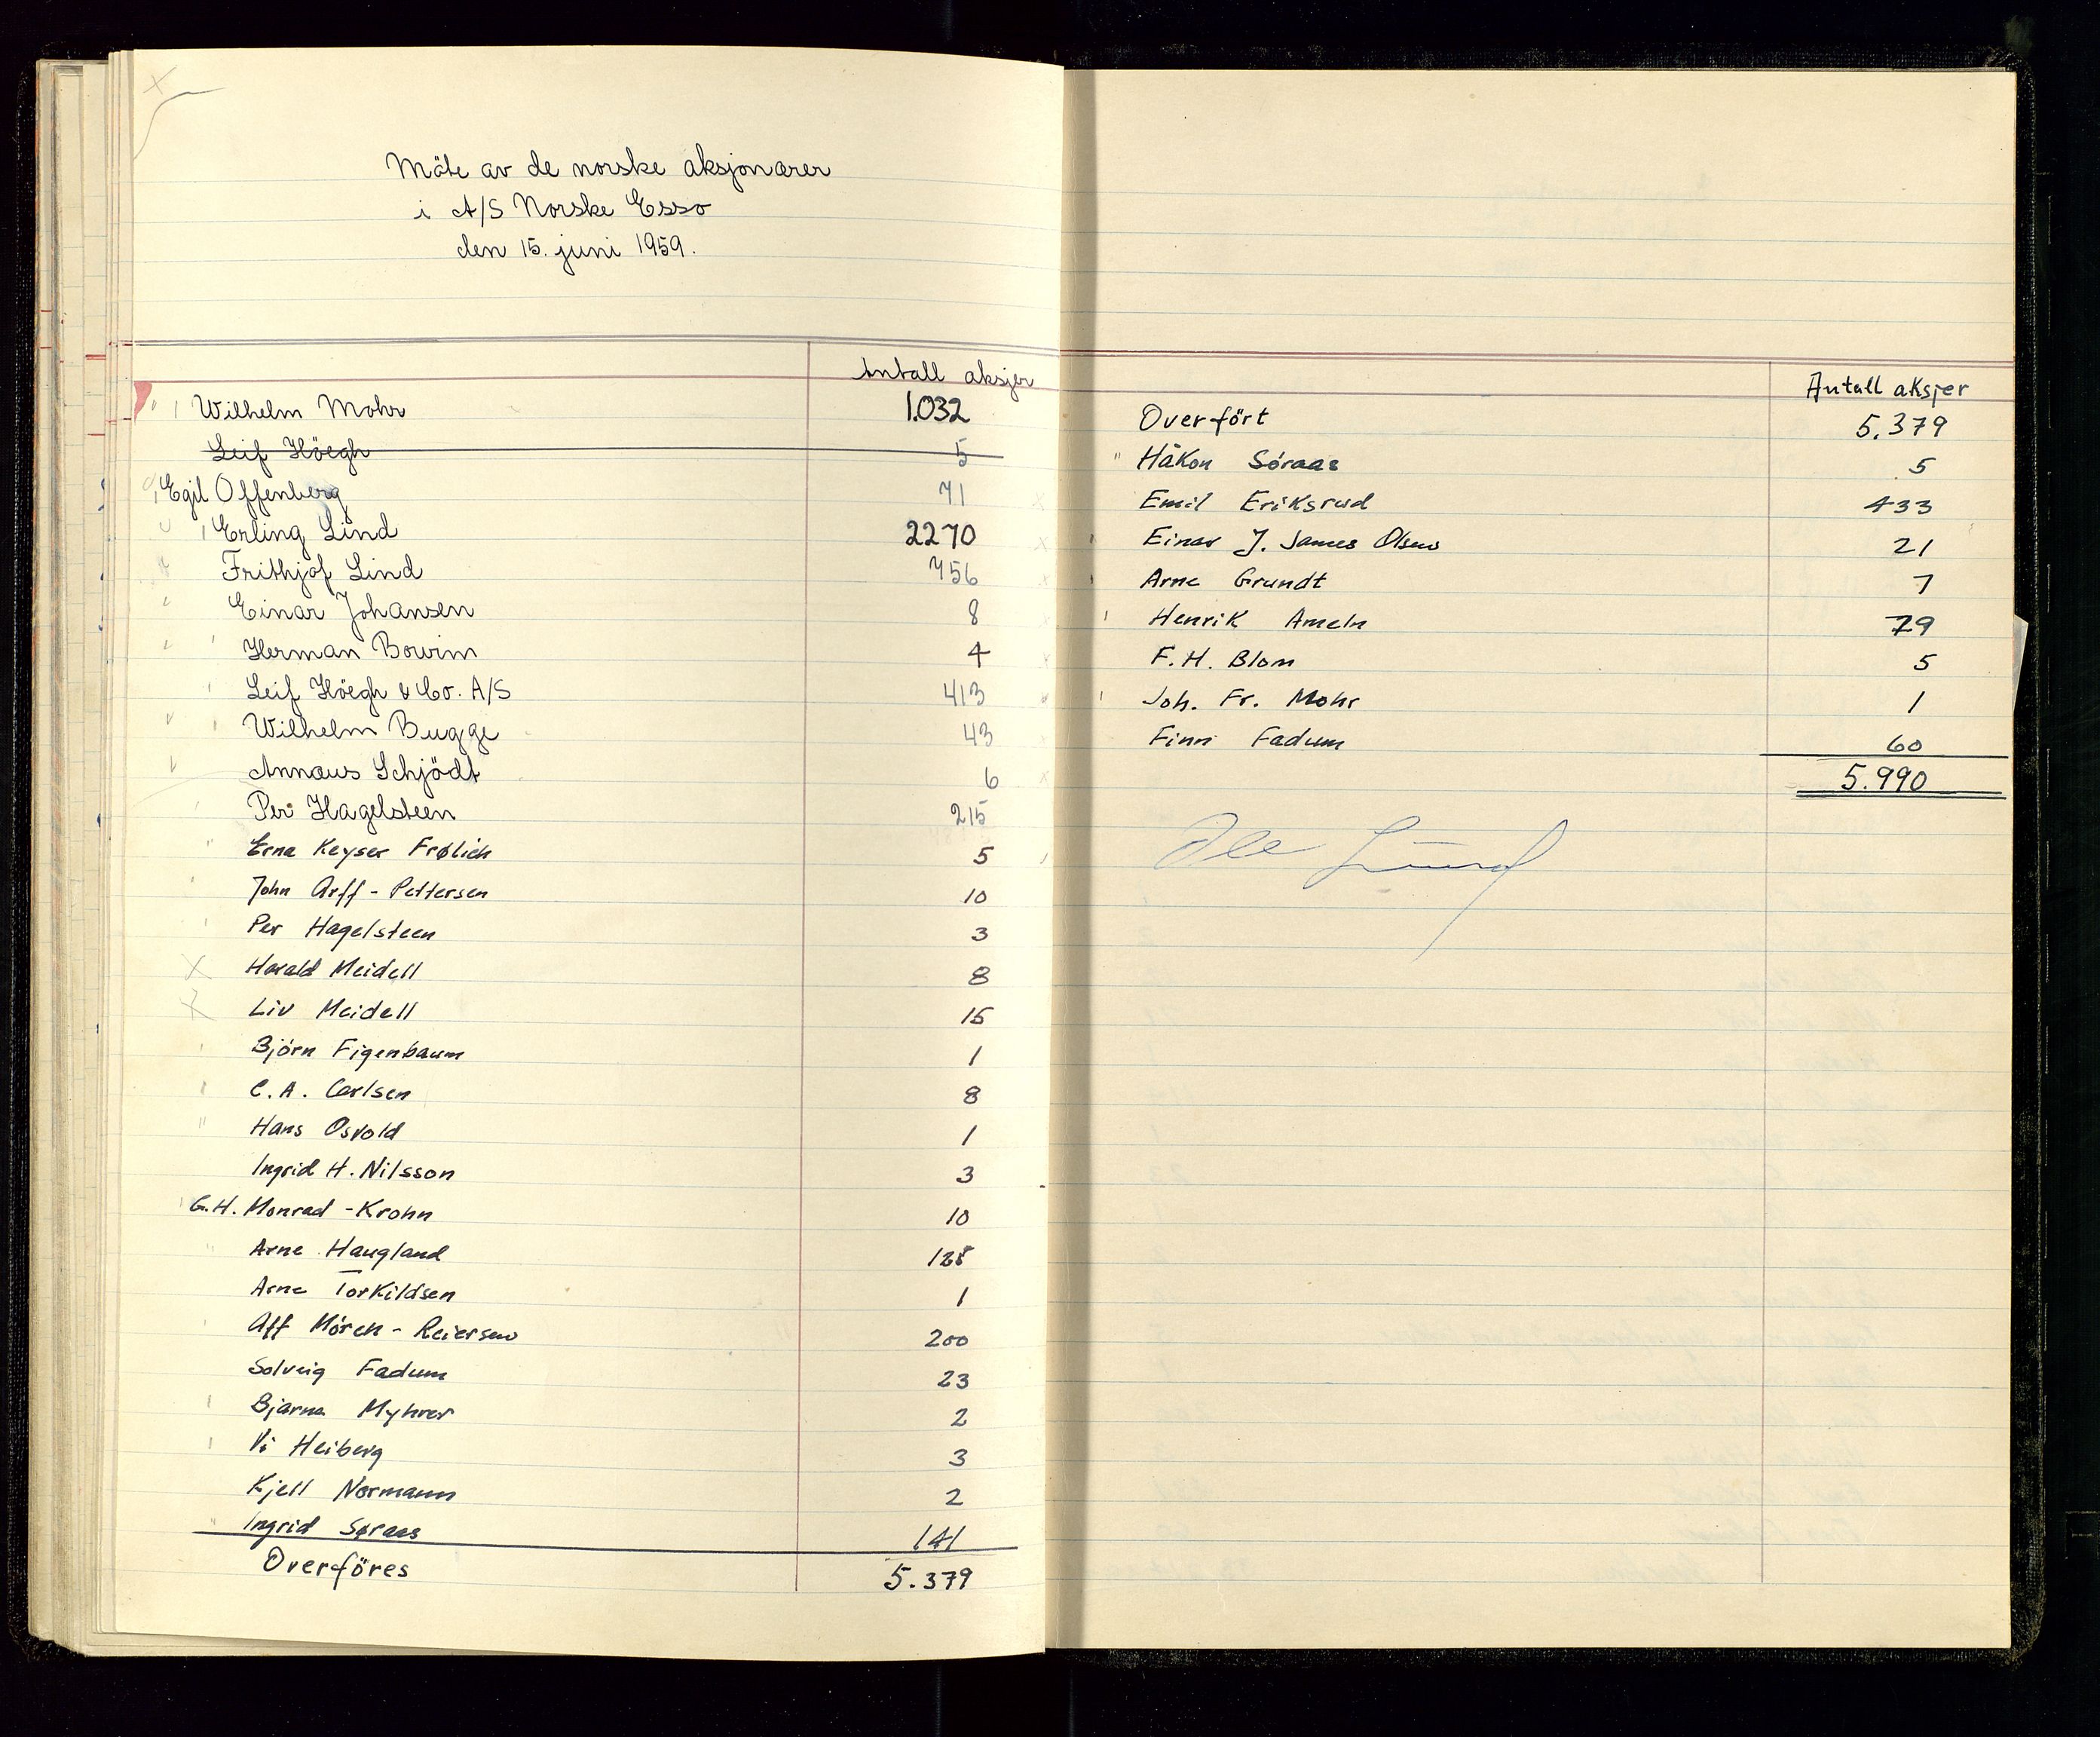 Möte av de norske aksjonærer
i A/S Norske Esso
den 15. juni 1959.
Antall aksjer
Wilhelm Mohr 1.032
Leif Höegh 5
Egil Offenberg 71
Erling Lind 2270
Frithjof Lind 756
Einar Johansen 8
Herman Bowim 4
Leif Höegh & Co. A/S 413
Wilhelm Bugge 43
Annæus Schjödt 6
Per Hagelsteen 215
Erna Keyser Frølich 5
John Arff-Pettersen 10
Per Hagelsteen 3
Harald Meidell 8
Liv Meidell 15
Björn Figenbaum 1
C.A. Carlsen 8
Hans Osvold 1
Ingrid H. Nilsson 3
G.H. Monrad-Krohn 10
Arne Haugland 125
Arne Torkildsen 1
Alf Mören-Reiersen 200
Solveig Fadum 23
Bjarne Myhrer 2
Vi Heiberg 3
Kjell Normann 2
Ingrid Søraas 141
Overföres 5.379
Antall aksjer
Overfört 5.379
Håkon Söraas 5
Emil Eriksrud 433
Einar J. James Olsen 21
Arne Grundt 7
Henrik Ameln 79
F.H. Blom 5
Joh. Fr. Mohr 1
Finn Fadum 60
5.990
Ole Lund